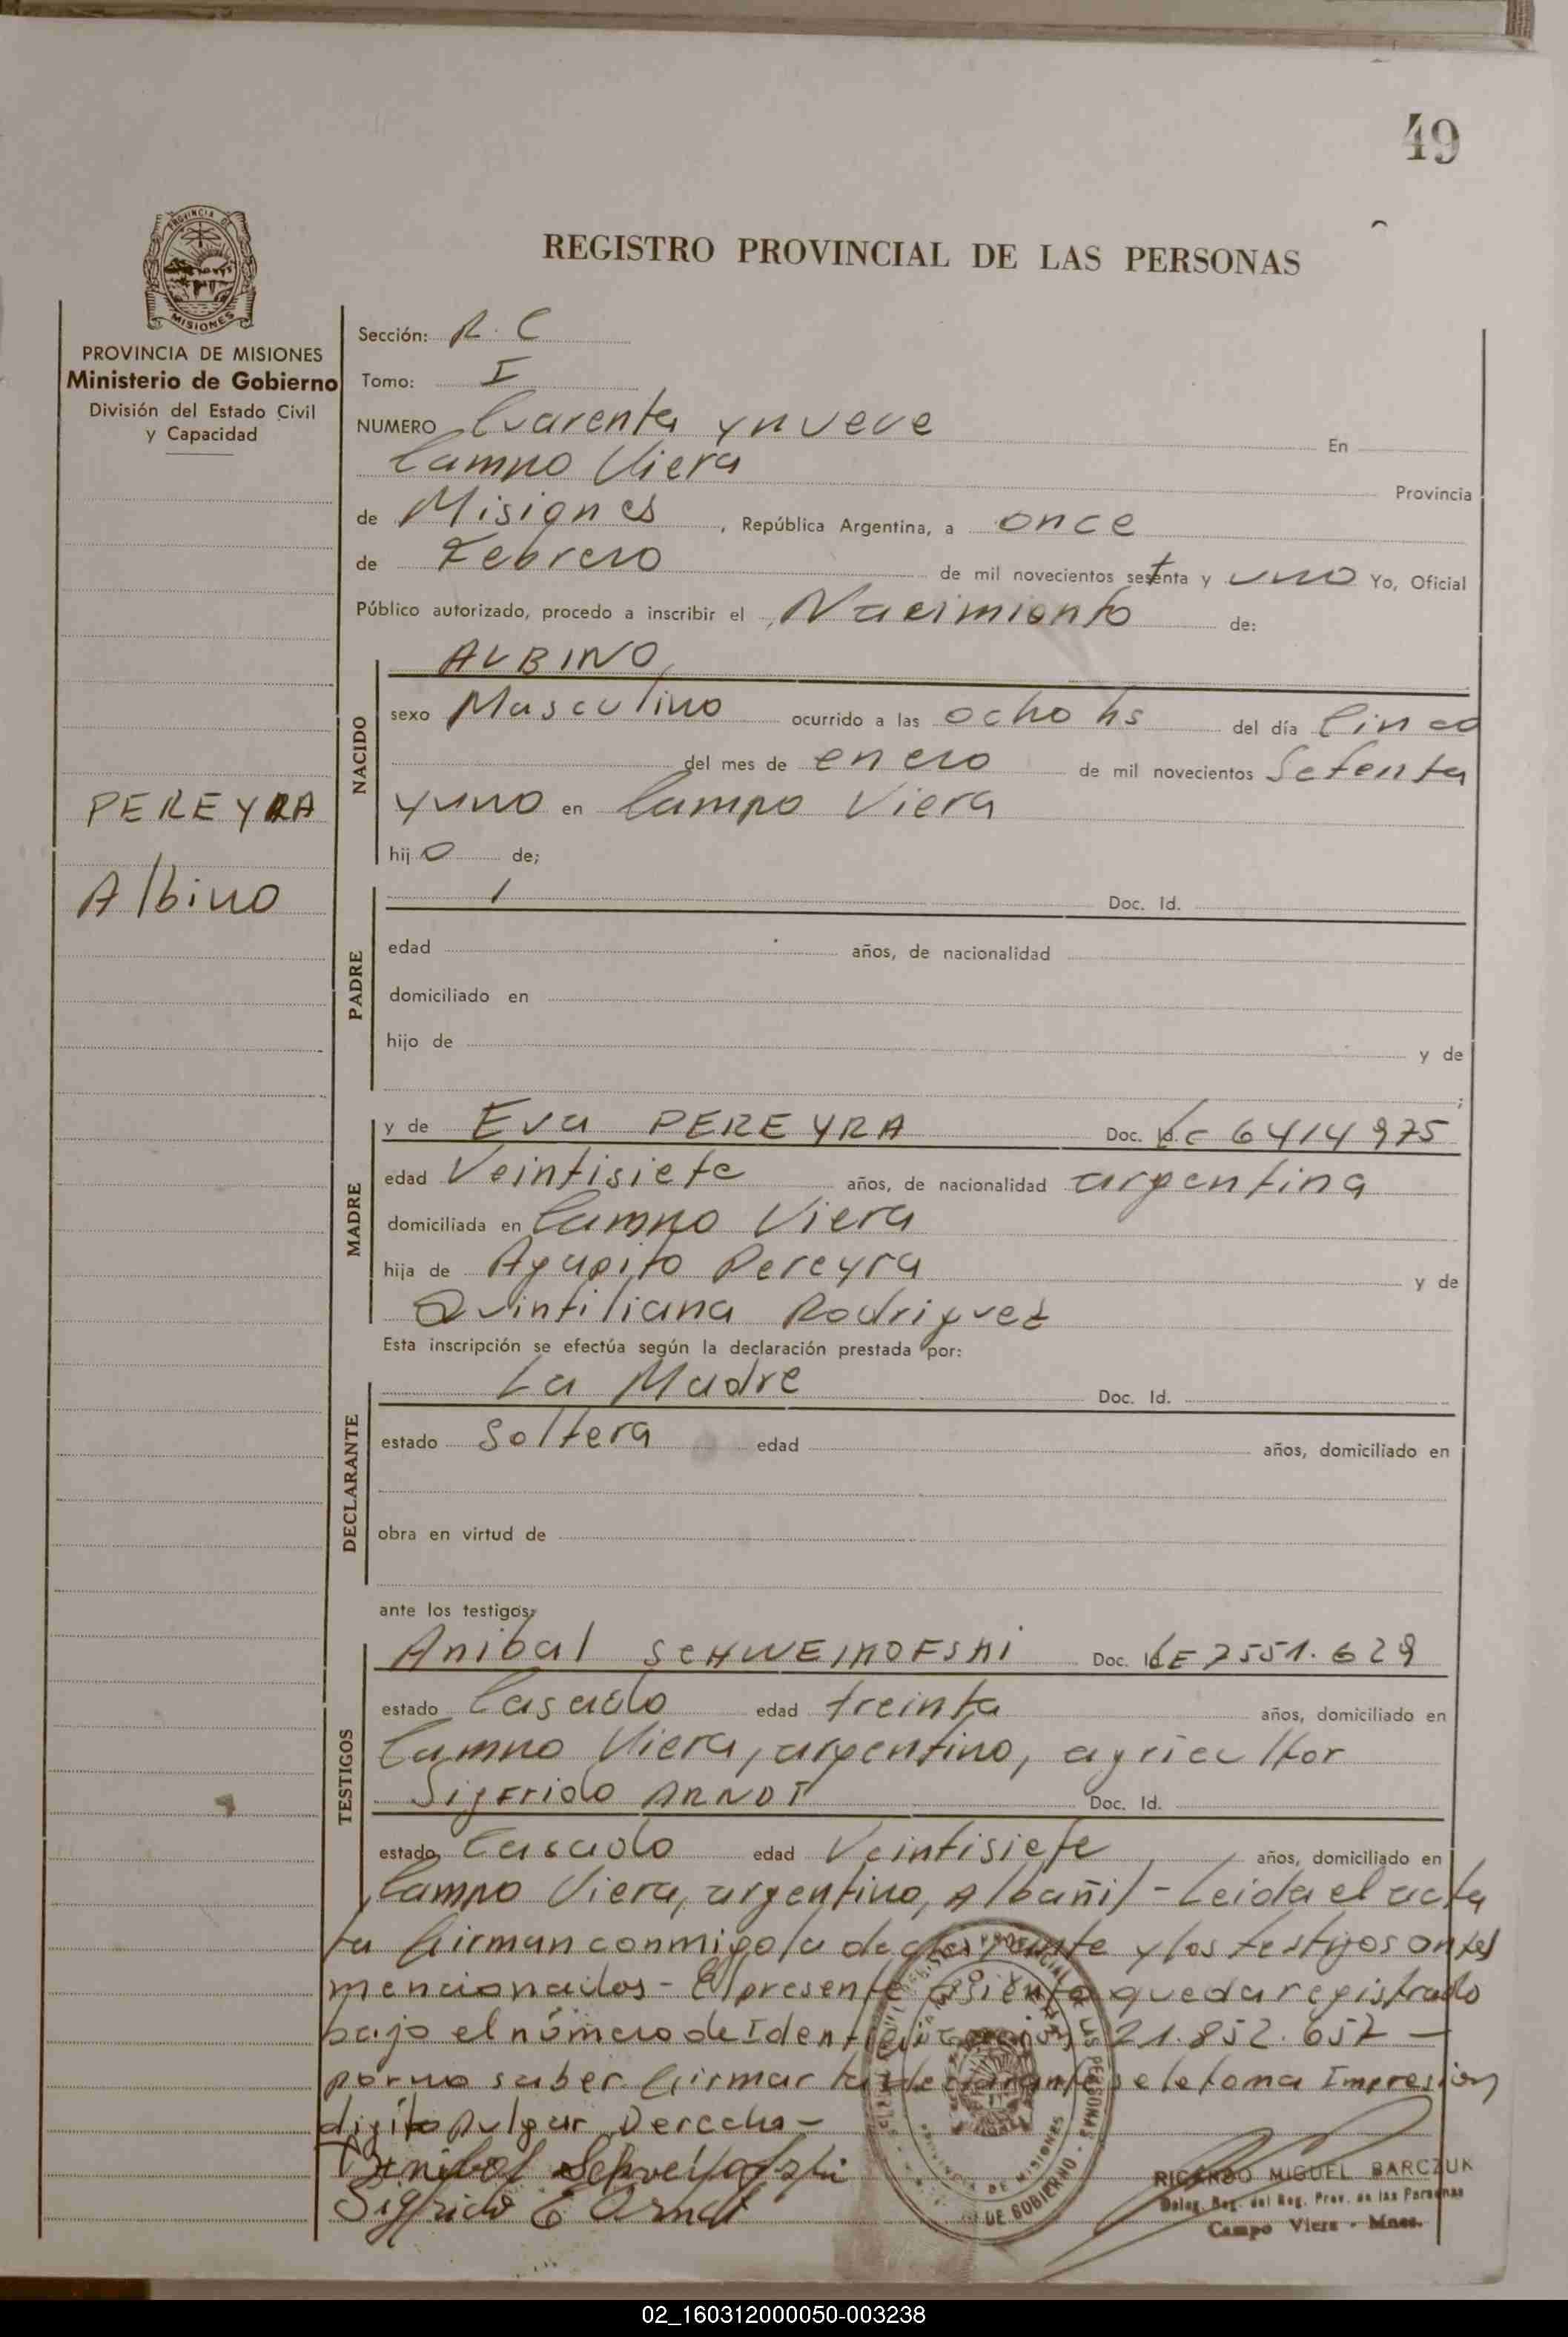 49
PROVINCIA DE
MISIONES
REGISTRO PROVINCIAL DE LAS PERSONAS
PROVINCIA DE MISIONES
Ministerio de Gobierno
División del Estado Civil
y Capacidad
PEREYRA
Albino
Sección: R. C
Tomo: I
NUMERO Cuarenta y nueve En
Campo Viera Provincia
de Misiones, República Argentina, a once
de Febrero de mil novecientos setenta y uno Yo, Oficial
Público autorizado, procedo a inscribir el Nacimiento de:
NACIDO
ALBINO
sexo Masculino ocurrido a las ocho hs del día Cinco
del mes de enero de mil novecientos Setenta
y uno en Campo Viera
hijo de;
PADRE
Doc. Id.
edad años, de nacionalidad
domiciliado en
hijo de y de
;
MADRE
y de Eva PEREYRA Doc. Id. LC 6414975
edad Veintisiete años, de nacionalidad argentina
domiciliada en Campo Viera
hija de Agapito Pereyra y de
Quintiliana Rodriguez
Esta inscripción se efectúa según la declaración prestada por:
DECLARANTE
La Madre Doc. Id.
estado Soltera edad años, domiciliado en
obra en virtud de
ante los testigos:
TESTIGOS
Anibal SCHWEIKOFSKI Doc. Id. LE 7551.629
estado Casado edad treinta años, domiciliado en
Campo Viera, argentino, agricultor
Sigfrido ARNDT Doc. Id.
estado Casado edad Veintisiete años, domiciliado en
Campo Viera, argentino, Albañil - Leida el acta
ta firman conmigo la declarante y los testigos antes
mencionados - El presente asiento queda registrado
bajo el número de Identificación 21.852.657 -
por no saber firmar la declarante se le toma Impresion
digito Pulgar Derecha -
Anibal
Sigfrido E Arndt
DE MISIONES
DE GOBIERNO
RICARDO MIGUEL BARCZUK
Deleg. Reg. del Reg. Prov. de las Personas
Campo Viera - Mnes.
02_160312000050-003238